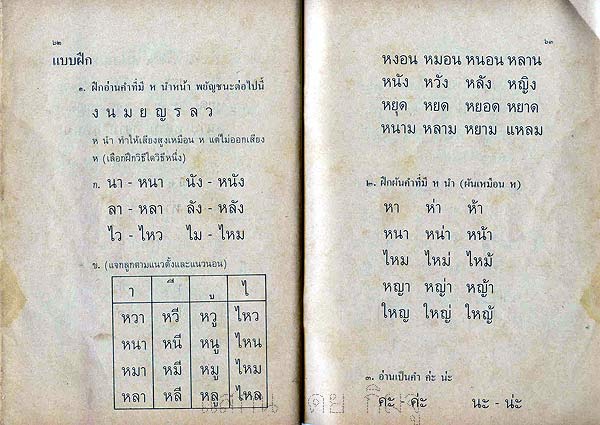 ๖๒
แบบฝึก
๑. ฝึกอ่านคำที่มี ห นำหน้า พยัญชนะต่อไปนี้
ง น ม ย ญ ร ล ว
ห นำ ทำให้เสียงสูงเหมือน ห แต่ไม่ออกเสียง
ห (เลือกฝึกวิธีใดวิธีหนึ่ง)
ก. นา - หนา นัง - หนัง
ลา - หลา ลัง - หลัง
ไว - ไหว ไม - ไหม
ข. (แจกลูกตามแนวตั้งและแนวนอน)
า ี ู ไ
หวา หวี หวู ไหว
หนา หนี หนู ไหน
หมา หมี หมู ไหม
หลา หลี หลู ไหล
๖๓
หงอน หมอน หนอน หลาน
หนัง หวัง หลัง หญิง
หยุด หยด หยอด หยาด
หนาม หลาม หยาม แหลม
๒. ฝึกผันคำที่มี ห นำ (ผันเหมือน ห)
หา ห่า ห้า
หนา หน่า หน้า
ไหม ไหม่ ไหม้
หญา หญ่า หญ้า
ใหญ ใหญ่ ใหญ้
๓. อ่านเป็นคำ ค่ะ น่ะ
คะ - ค่ะ นะ - น่ะ